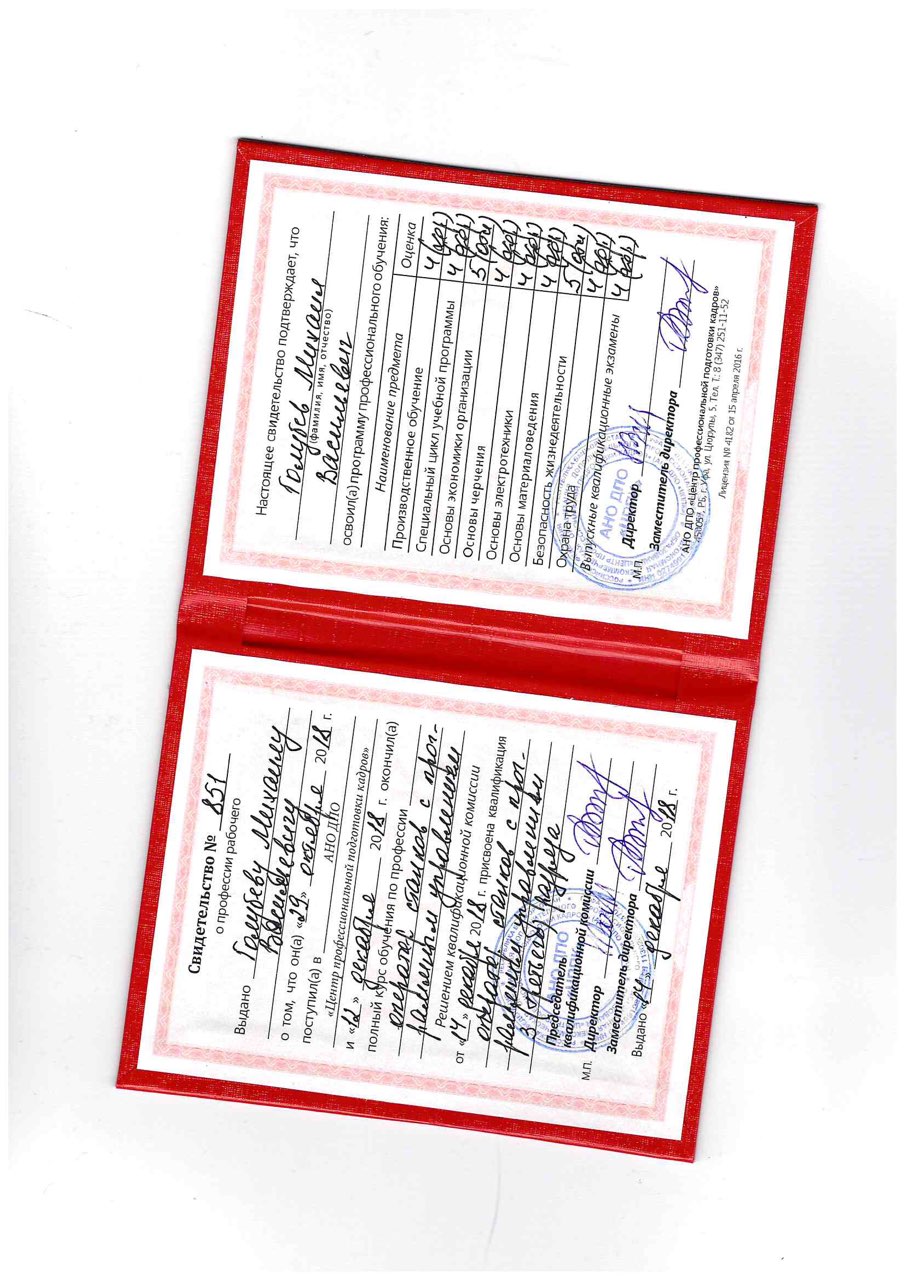 Свидетельство № 851
о профессии рабочего
Выдано Голубеву Михаилу
Васильевичу
о том, что он(а) «29» октября 2018 г.
поступил(а) в АНО ДПО
«Центр профессиональной подготовки кадров»
и «12» декабря 2018 г. окончил(а)
полный курс обучения по профессии
оператор станков с прог-
раммным управлением
Решением квалификационной комиссии
от «14» декабря 2018 г. присвоена квалификация
оператор станков с прог-
раммным управлением
3 (третьего) разряда
Председатель
квалификационной комиссии
М.П. Директор
Заместитель директора
Выдано «14» декабря 2018 г.
АНО ДПО
Настоящее свидетельство подтверждает, что
Голубев Михаил
(фамилия, имя, отчество)
Васильевич
освоил(а) программу профессионального обучения:
Наименование предмета Оценка
Производственное обучение 4 (хор.)
Специальный цикл учебной программы 4 (хор.)
Основы экономики организации 5 (отл)
Основы черчения 4 (хор.)
Основы электротехники 4 (хор.)
Основы материаловедения 4 (хор.)
Безопасность жизнедеятельности 5 (отл)
Охрана труда 4 (хор.)
Выпускные квалификационные экзамены 4 (хор.)
АНО ДПО
Директор
М.П.
Заместитель директора
АНО ДПО «Центр профессиональной подготовки кадров»
450057, РБ, г. Уфа, ул. Цюрупы, 5. Тел. Т.: 8 (347) 251-11-52
Лицензия № 4182 от 15 апреля 2016 г.